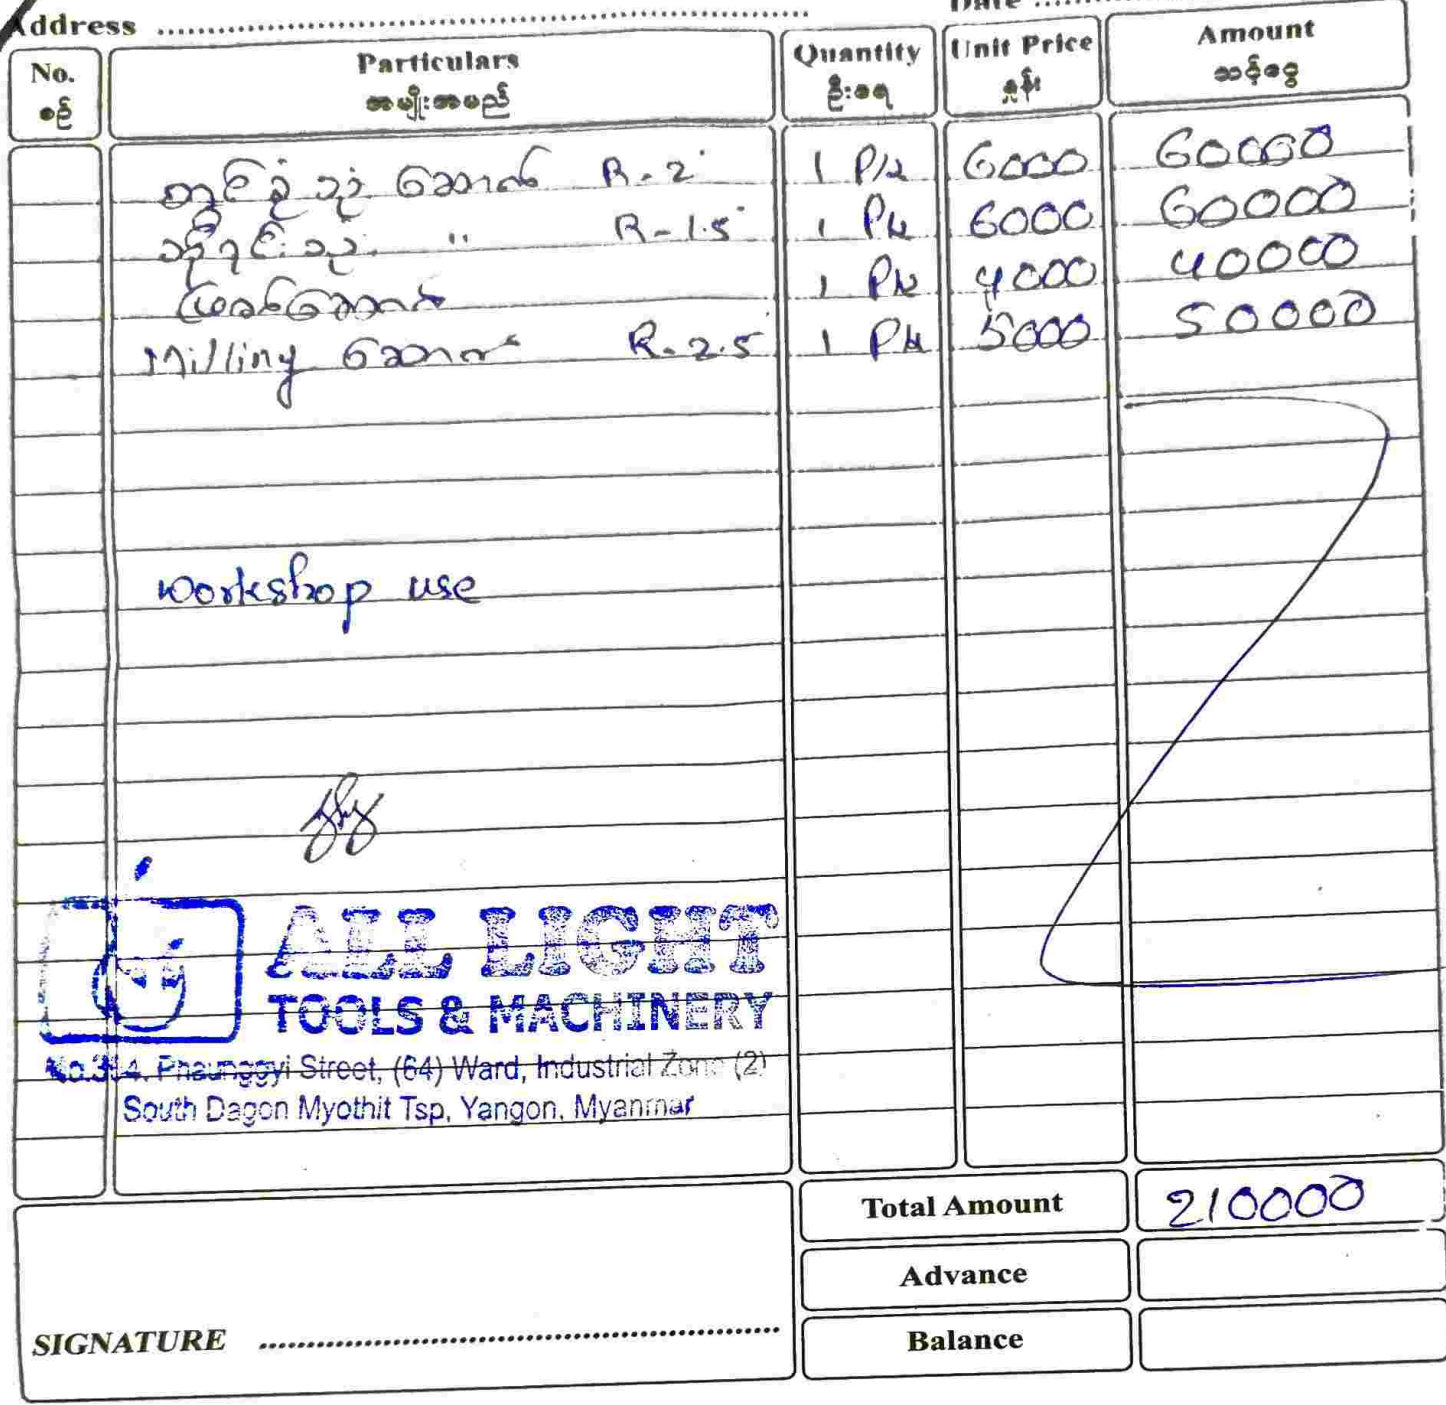 Address
Date
No. Particulars Quantity Unit Price Amount
စဉ် အမျိုးအမည် ဦးရေ နှုန်း သင့်ငွေ
တွင်ခုံသုံး ဆောက် R-2 1 Pk 6000 60000
ထိုင်းသုံး " R-1.5 1 Pk 6000 60000
ဖြတ်ဆောက် 1 Pk 4000 40000
Milling ဆောက် R-2.5 1 Pk 5000 50000
workshop use
ALL LIGHT
TOOLS & MACHINERY
Phaunggyi Street, (64) Ward, Industrial Zone (2)
South Dagon Myothit Tsp, Yangon, Myanmar
Total Amount 210000
Advance
SIGNATURE Balance